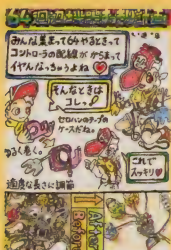 みんな集まって64やるときって
コントローラの配線がからまって
イヤんなっちゃうよね
そんなときは
コレッ!
セロハンのテープの
ケースだね。
ゆるく巻く。
これで
スッキリ
適度な長さに調節
After
Before